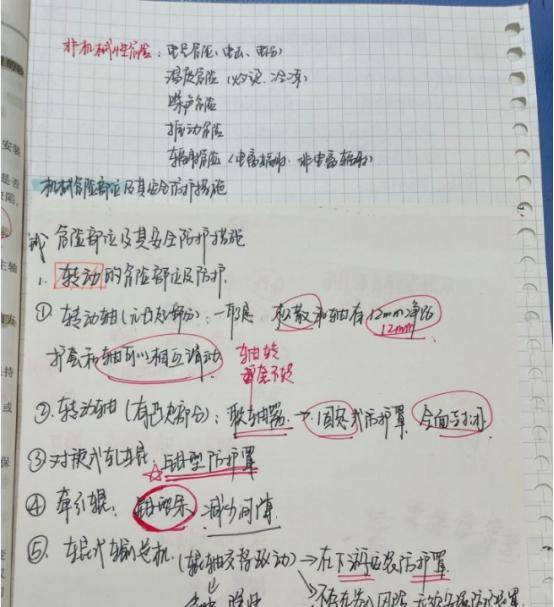 非机械性危险：电气危险（电击、电伤）
温度危险（灼烫、冷冻）
噪声危险
振动危险
辐射危险（电离辐射、非电离辐射）
机械危险部位及其安全防护措施
危险部位及其安全防护措施
1. 转动的危险部位及防护
① 转动轴（无凸起部分）：一般是 松散 和轴有 12mm净距
12mm
护套和轴可以相互滑动
轴转
护套不转
②. 转动轴（有凸起部分）：联轴器 → 固定式防护罩 全面封闭
③ 对旋式轧辊 ☆ 钳型防护罩
④ 牵引辊： 钳型条 减少间隙
⑤. 辊式输送机（辊轴交替驱动）→ 在下游安装防护罩